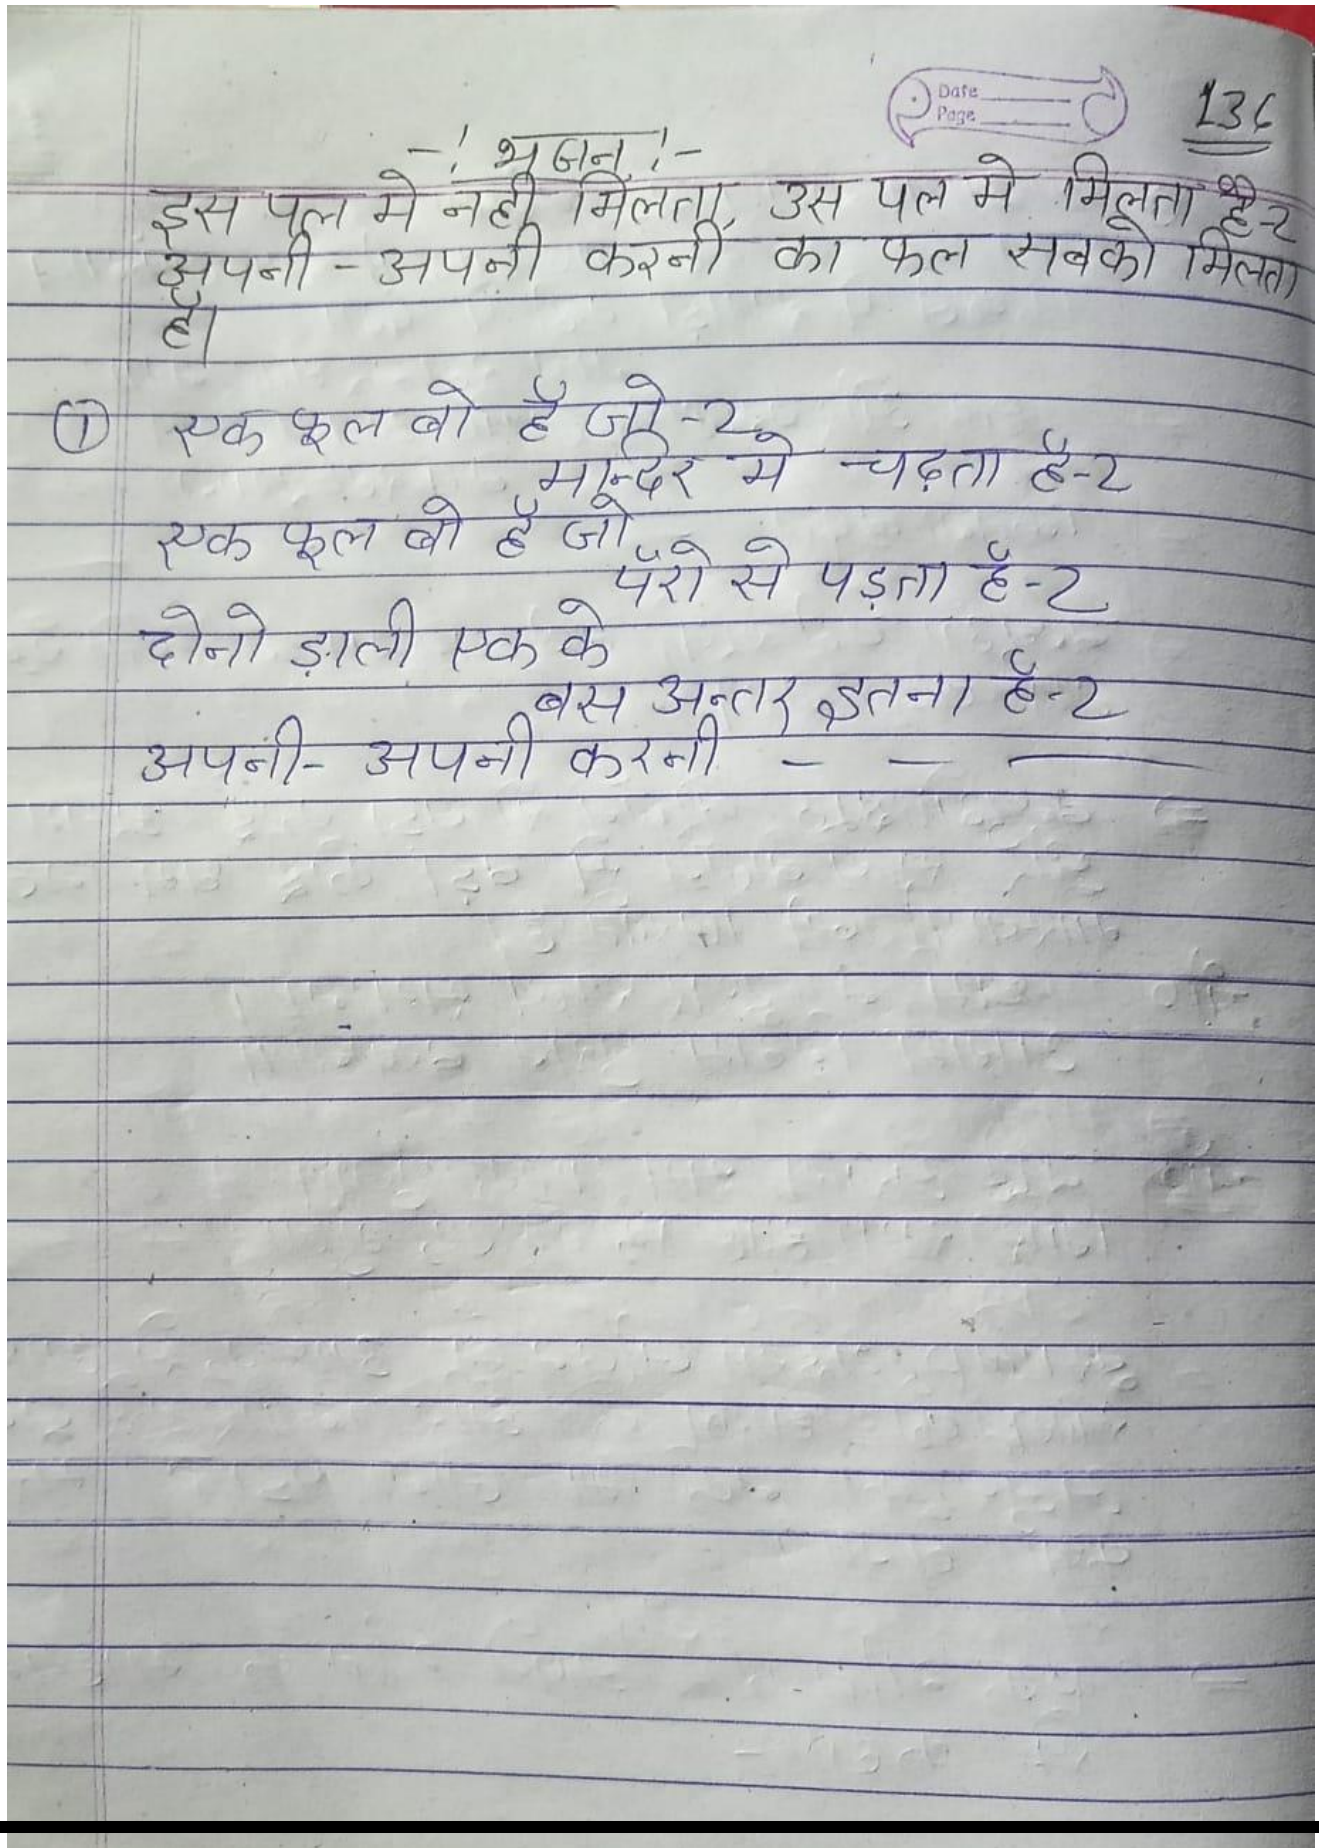 Date
Page
136
-! भजन !-
इस पल मे नही मिलता, उस पल मे मिलता है-2
अपनी - अपनी करनी का फल सबको मिलता
है।
① एक फूल बो है जो -2
मन्दिर मे चढ़ता है-2
एक फूल बो है जो
पैरो से पड़ता है-2
दोनो ड़ाली एक के
बस अन्तर इतना है-2
अपनी- अपनी करनी - - —